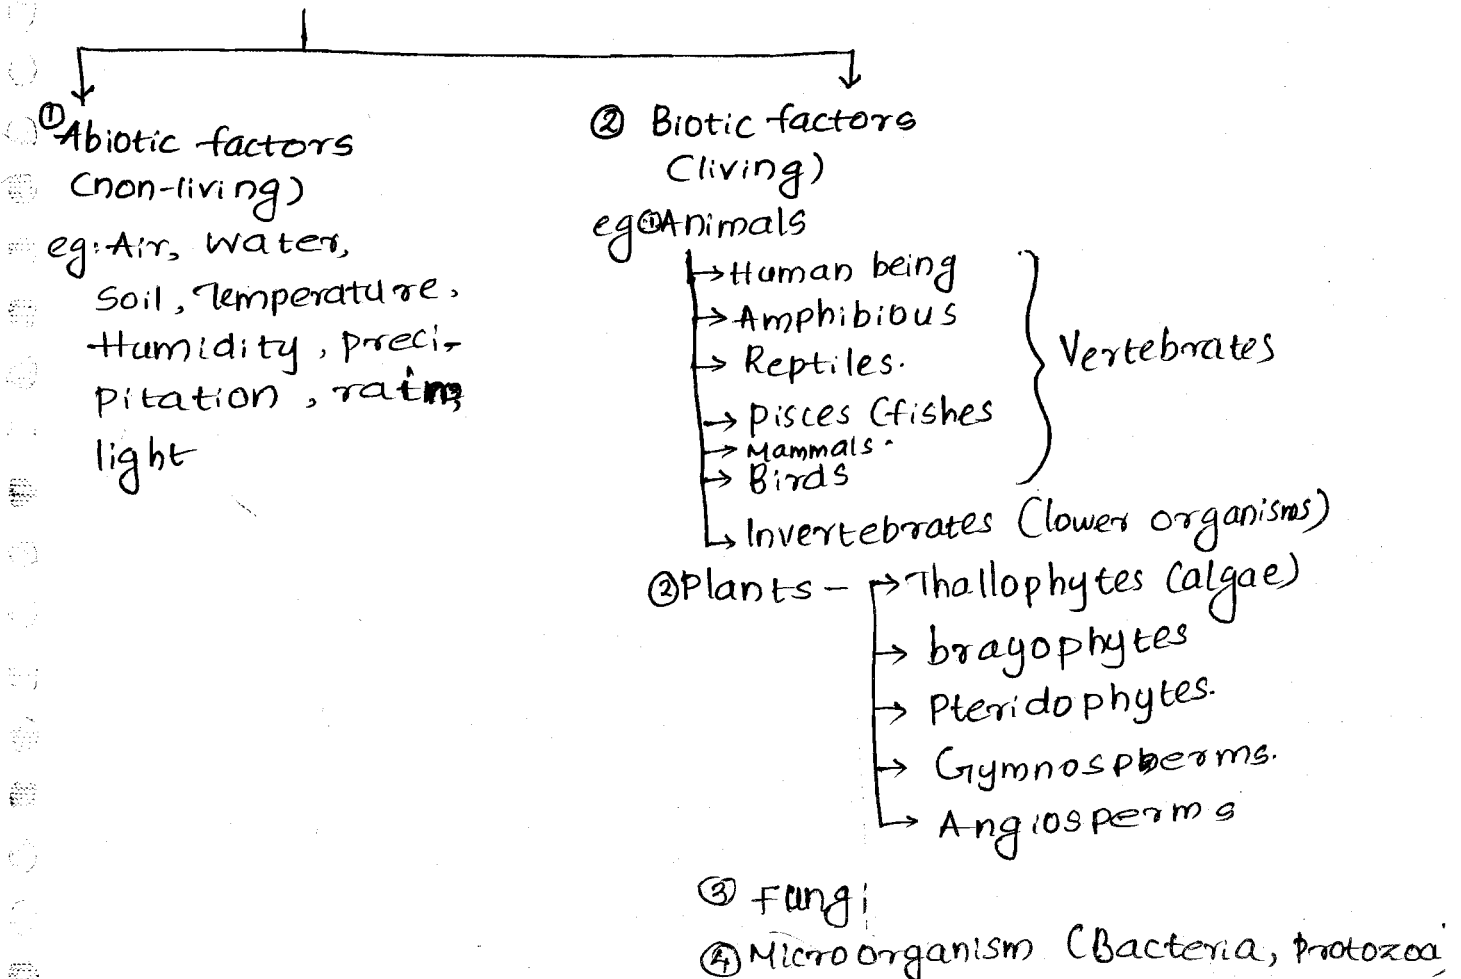 ① Abiotic factors
(non-living)
eg: Air, Water,
Soil, Temperature,
Humidity, preci-
pitation, rain,
light
② Biotic factors
(living)
eg ① Animals
→ Human being
→ Amphibious
→ Reptiles.
→ Pisces (fishes
→ Mammals.
→ Birds
Vertebrates
→ Invertebrates (lower organisms)
② Plants - → Thallophytes (algae)
→ brayophytes
→ Pteridophytes.
→ Gymnosperms.
→ Angiosperms
③ Fungi
④ Microorganism (Bacteria, Protozoa